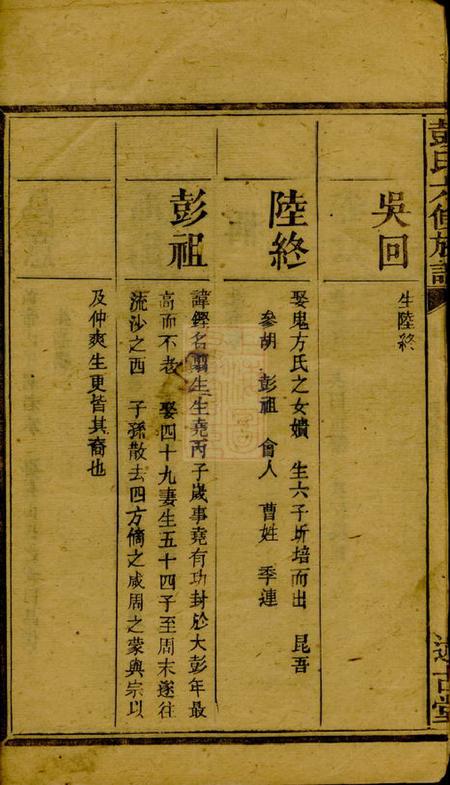 彭氏六修族譜
述古堂
吳回
生陸終
陸終
娶鬼方氏之女嬇 生六子坼培而出 昆吾
參胡 彭祖 會人 曹姓 季連
彭祖
諱鏗名翦生生堯丙子歲事堯有功封於大彭年最
高而不老 娶四十九妻生五十四子至周末遂往
流沙之西 子孫散去四方脩之咸周之蒙與宗以
及仲爽生更皆其裔也